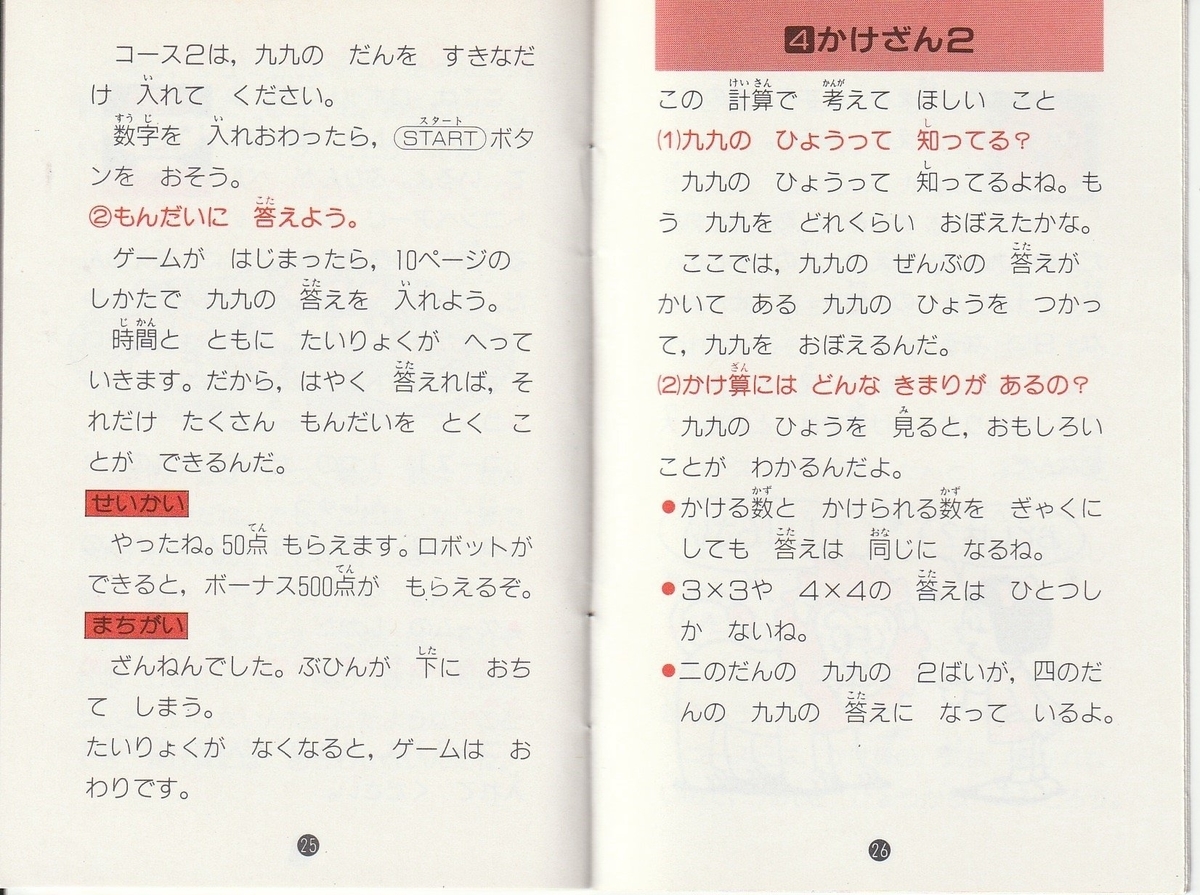 コース2は，九九の　だんを　すきなだ
け　入れて　ください。
数字を　入れおわったら，STARTボタ
ンを　おそう。
②もんだいに　答えよう。
ゲームが　はじまったら，10ページの
しかたで　九九の　答えを　入れよう。
時間と　ともに　たいりょくが　へって
いきます。だから，はやく　答えれば，そ
れだけ　たくさん　もんだいを　とく　こ
とが　できるんだ。
せいかい
やったね。50点　もらえます。ロボットが
できると，ボーナス500点が　もらえるぞ。
まちがい
ざんねんでした。ぶひんが　下に　おち
て　しまう。
たいりょくが　なくなると，ゲームは　お
わりです。
25
4かけざん2
この　計算で　考えて　ほしい　こと
(1)九九の　ひょうって　知ってる？
九九の　ひょうって　知ってるよね。も
う　九九を　どれくらい　おぼえたかな。
ここでは，九九の　ぜんぶの　答えが
かいて　ある　九九の　ひょうを　つかっ
て，九九を　おぼえるんだ。
(2)かけ算には　どんな　きまりが　あるの？
九九の　ひょうを　見ると，おもしろい
ことが　わかるんだよ。
●かける数と　かけられる数を　ぎゃくに
しても　答えは　同じに　なるね。
●3×3や　4×4の　答えは　ひとつし
か　ないね。
●二のだんの　九九の　2ばいが，四のだ
んの　九九の　答えに　なって　いるよ。
26